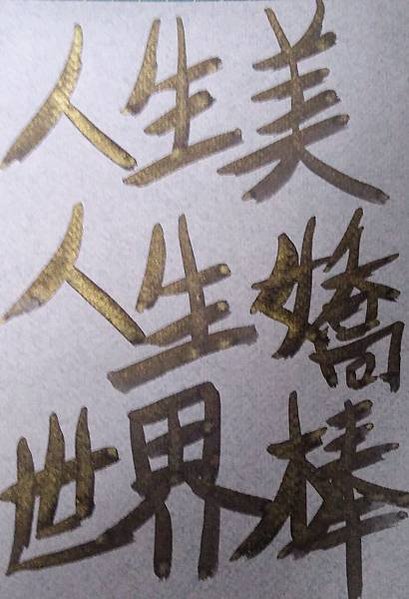 人生美
人生嬌
世界棒